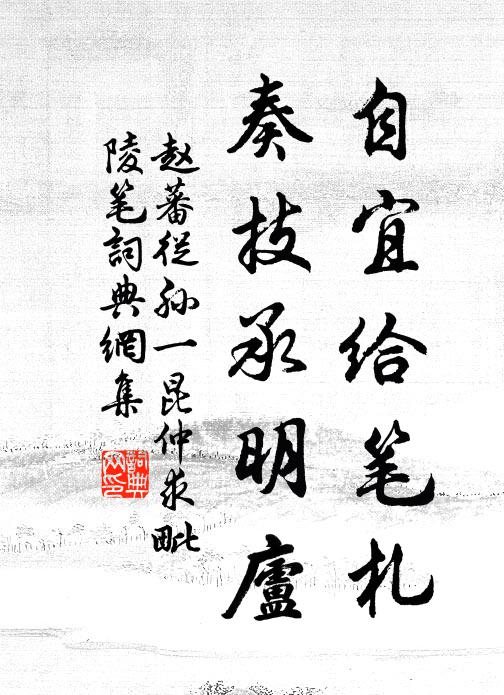 自宜给笔札
奏技承明廬
赵蕃從孙一昆仲求毗
陵笔詞典網集
詞典网印